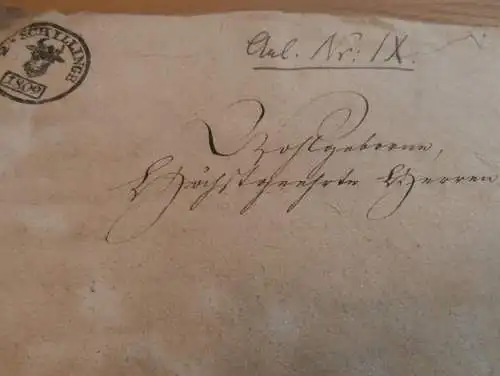 SCHILLINGE
1809
Anl. Nr: IX.
Wohlgeborne,
Höchstgeehrte Herren